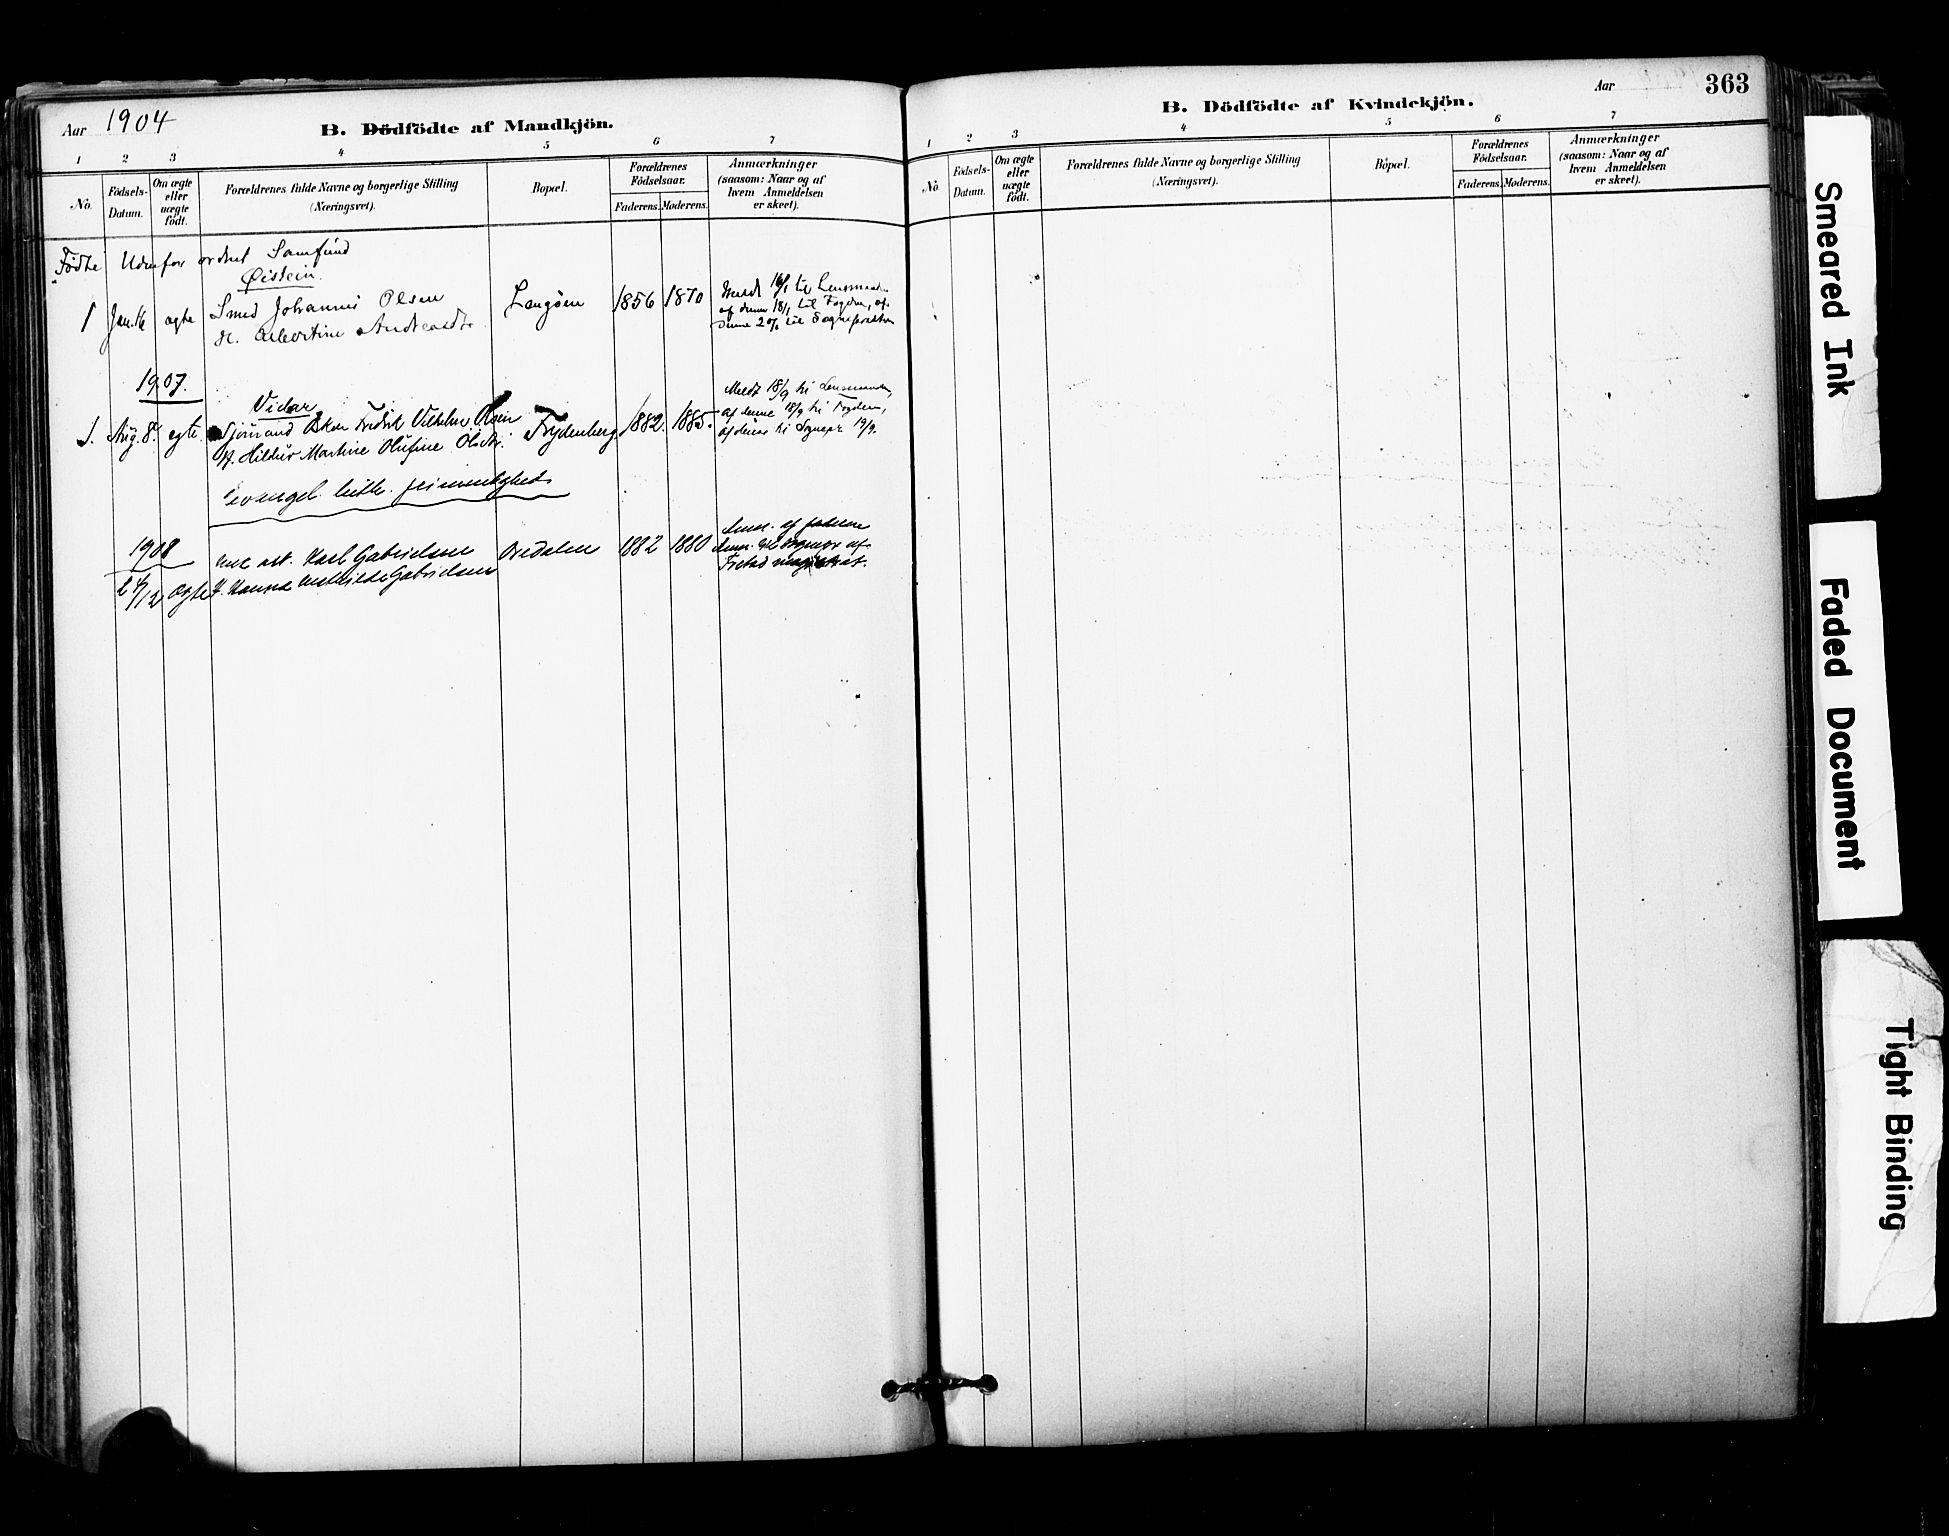 Aar 1904
B. Dödfödte af Mandkjön.
1 2 3 4 5 6 7
No.
Födsels-Datum.
Om ægte eller uægte födt.
Forældrenes fulde Navne og borgerlige Stilling
(Næringsvei).
Bopæl.
Forældrenes Födselsaar.
Faderens. Moderens.
Anmærkninger
(saasom: Naar og af
hvem Anmeldelsen
er skeet).
Födte Udenfor ordnet Samfund
Øistein.
1 Jan. 16 ægte Smed Johannes Olsen Langøen 1856 1870
H. Albertine
Meldt 16/1 til Lensmanden
af denne 18/1 til Fogden, af
denne 20/1 til Sognepræsten
1907.
Vidar
1. Aug. 8. egte. Sjömand Oskar Fredrik Vilhelm Olsen Frydenberg 1882. 1885.
H. Hildur Martine Olufine
Meldt 18/9 til Lensmanden,
af denne 18/9 til Fogden,
af denne til Sognepr. 19/9.
evangel. luth. frimenighed
1908
24/12 ægte Karl Gabrielsen Ovedalen 1882 1880
H. Hanna Mathilde Gabrielsen
Anm. af faderen
Anm. til sognepr af
magistrat.
Aar
363
B. Dödfödte af Kvindekjön.
1 2 3 4 5 6 7
No.
Födsels-Datum.
Om ægte eller uægte födt.
Forældrenes fulde Navne og borgerlige Stilling
(Næringsvei).
Bopæl.
Forældrenes Födselsaar.
Faderens. Moderens.
Anmærkninger
(saasom: Naar og af
hvem Anmeldelsen
er skeet).
Smeared Ink
Faded Document
Tight Binding